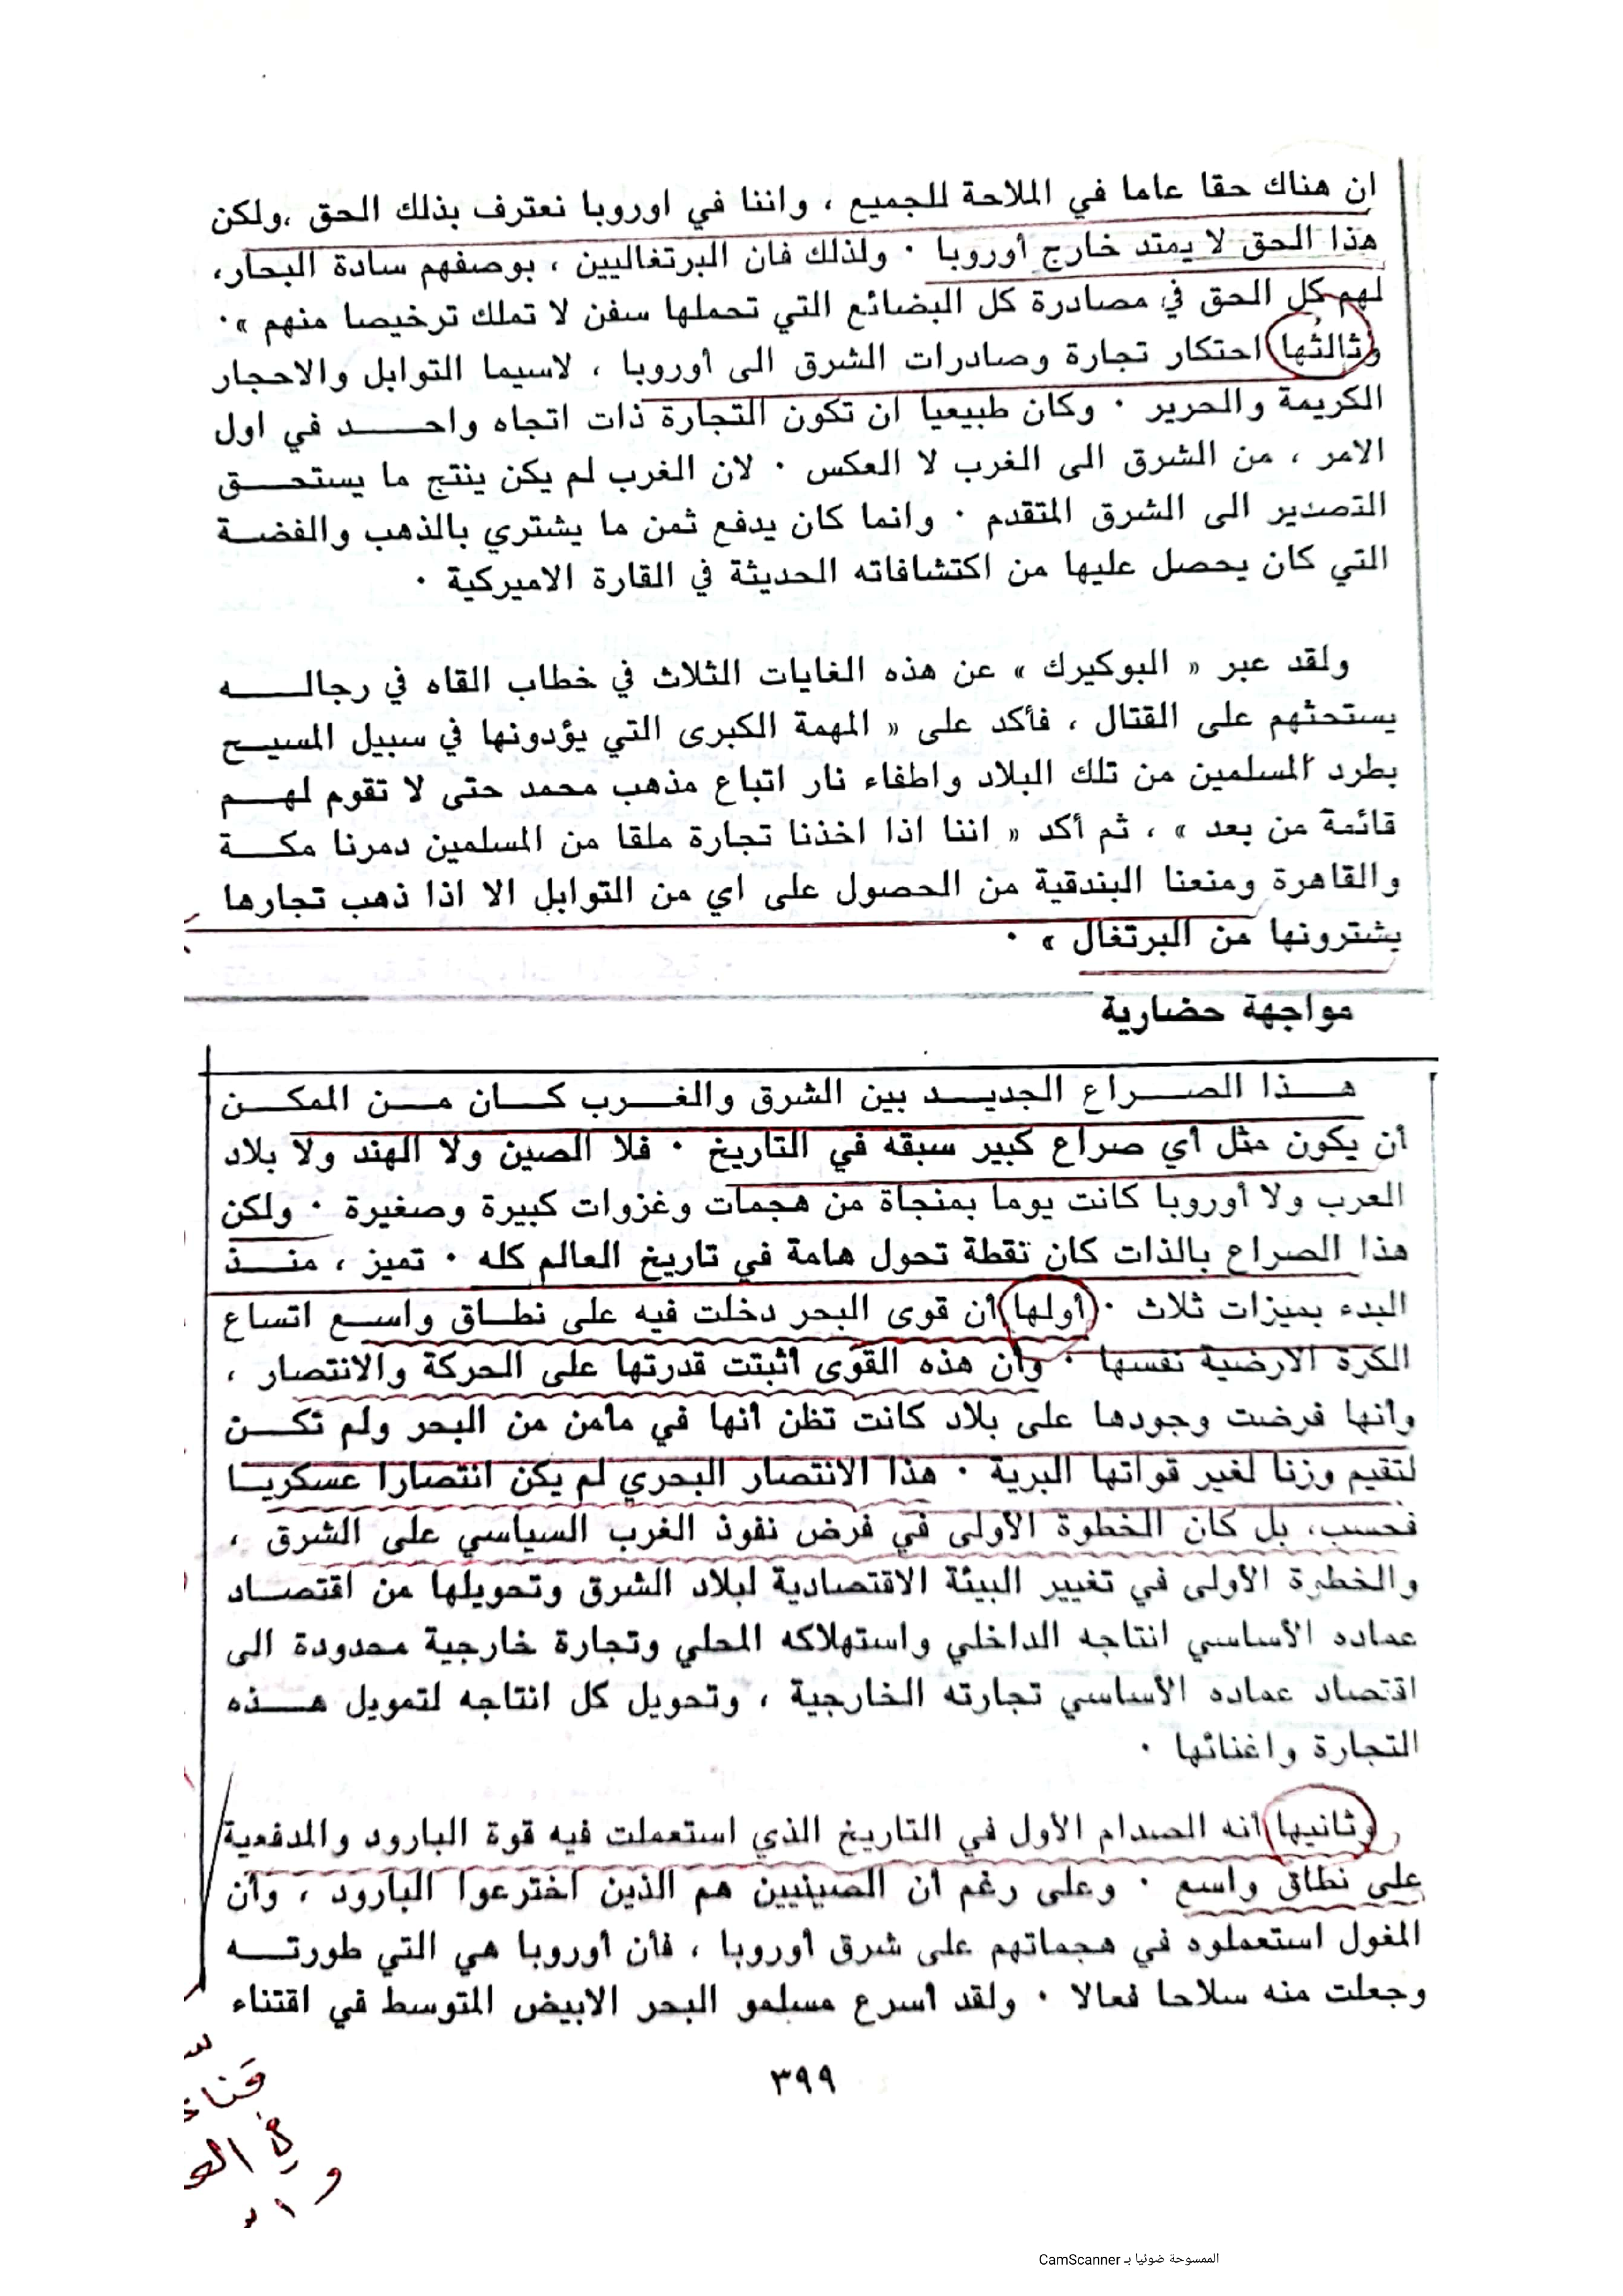 ان هناك حقا عاما في الملاحة للجميع ، واننا في اوروبا نعترف بذلك الحق ،ولكن
هذا الحق لا يمتد خارج أوروبا . ولذلك فان البرتغاليين ، بوصفهم سادة البحار،
لهم كل الحق في مصادرة كل البضائع التي تحملها سفن لا تملك ترخيصا منهم » .
وثالثها احتكار تجارة وصادرات الشرق الى أوروبا ، لاسيما التوابل والاحجار
الكريمة والحرير . وكان طبيعيا ان تكون التجارة ذات اتجاه واحد في اول
الامر ، من الشرق الى الغرب لا العكس . لان الغرب لم يكن ينتج ما يستحق
التصدير الى الشرق المتقدم . وانما كان يدفع ثمن ما يشتري بالذهب والفضة
التي كان يحصل عليها من اكتشافاته الحديثة في القارة الاميركية .
ولقد عبر « البوكيرك » عن هذه الغايات الثلاث في خطاب القاه في رجاله
يستحثهم على القتال ، فأكد على « المهمة الكبرى التي يؤدونها في سبيل المسيح
بطرد المسلمين من تلك البلاد واطفاء نار اتباع مذهب محمد حتى لا تقوم لهم
قائمة من بعد » ، ثم أكد « اننا اذا اخذنا تجارة ملقا من المسلمين دمرنا مكة
والقاهرة ومنعنا البندقية من الحصول على اي من التوابل الا اذا ذهب تجارها
يشترونها من البرتغال » .
مواجهة حضارية
هذا الصراع الجديد بين الشرق والغرب كان من الممكن
أن يكون مثل أي صراع كبير سبقه في التاريخ . فلا الصين ولا الهند ولا بلاد
العرب ولا أوروبا كانت يوما بمنجاة من هجمات وغزوات كبيرة وصغيرة . ولكن
هذا الصراع بالذات كان نقطة تحول هامة في تاريخ العالم كله . تميز ، منذ
البدء بميزات ثلاث . أولها أن قوى البحر دخلت فيه على نطاق واسع اتساع
الكرة الارضية نفسها . وأن هذه القوى أثبتت قدرتها على الحركة والانتصار ،
وأنها فرضت وجودها على بلاد كانت تظن أنها في مأمن من البحر ولم تكن
لتقيم وزنا لغير قواتها البرية . هذا الانتصار البحري لم يكن انتصارا عسكريا
فحسب، بل كان الخطوة الأولى في فرض نفوذ الغرب السياسي على الشرق ،
والخطوة الأولى في تغيير البيئة الاقتصادية لبلاد الشرق وتحويلها من اقتصاد
عماده الأساسي انتاجه الداخلي واستهلاكه المحلي وتجارة خارجية محدودة الى
اقتصاد عماده الأساسي تجارته الخارجية ، وتحويل كل انتاجه لتمويل هذه
التجارة واغنائها .
وثانيها أنه الصدام الأول في التاريخ الذي استعملت فيه قوة البارود والمدفعية
على نطاق واسع . وعلى رغم أن الصينيين هم الذين اخترعوا البارود ، وأن
المغول استعملوه في هجماتهم على شرق أوروبا ، فأن أوروبا هي التي طورته
وجعلت منه سلاحا فعالا . ولقد أسرع مسلمو البحر الابيض المتوسط في اقتناء
٣٩٩
في
و
الممسوحة ضوئيا بـ CamScanner